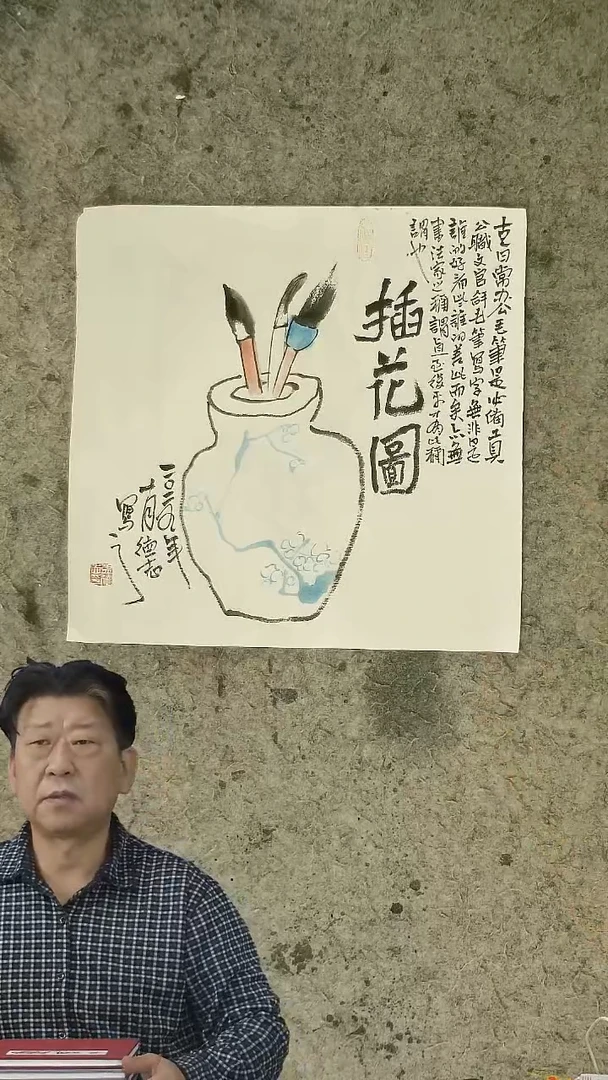 古日常办公毛筆是必備工具
公職文官毛筆寫字無非是
誰的好看些誰的差些而矣亦無
書法家之稱謂直至後才有此稱
謂也
插花圖
年
月德志
寫之